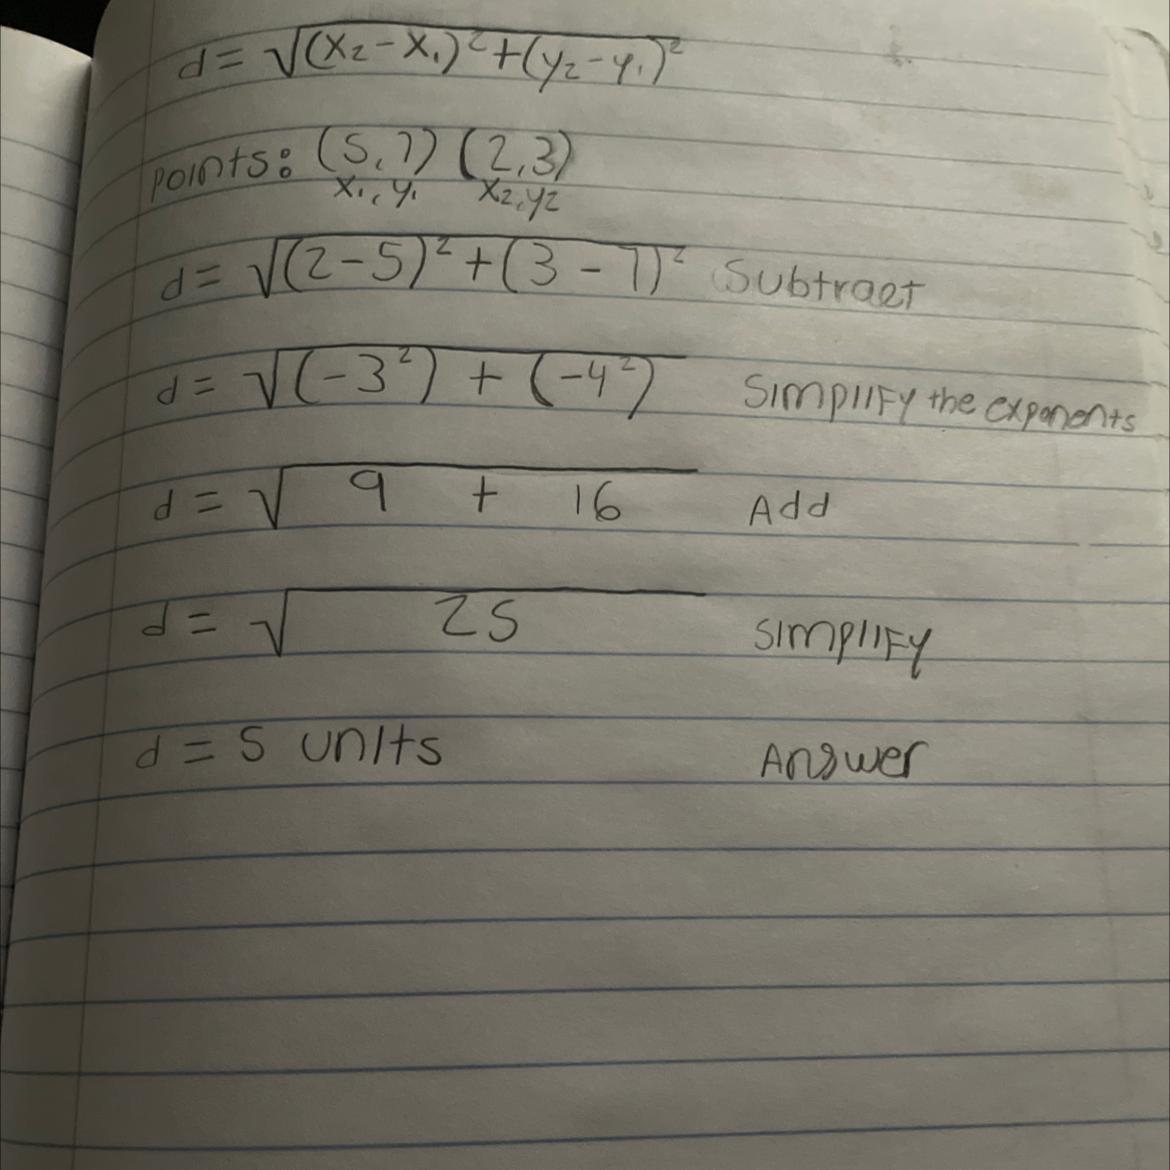 d = √(x₂ - x₁)² + (y₂ - y₁)²
points: (5,7) (2,3)
x₁, y₁ x₂, y₂
d = √(2 - 5)² + (3 - 7)² Subtract
d = √(-3²) + (-4²) Simplify the exponents
d = √9 + 16 Add
d = √25 Simplify
d = 5 units Answer